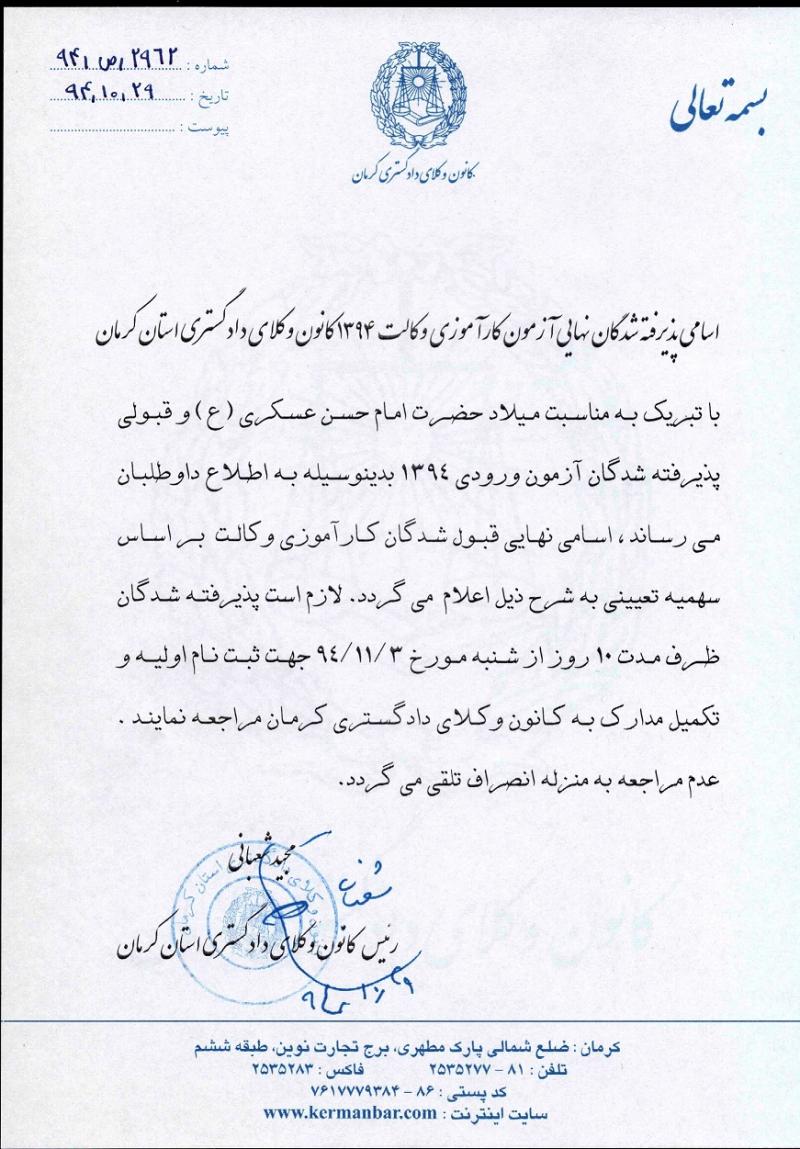 بسمه تعالی
کانون وکلای دادگستری کرمان
شماره : ۲۹۶۲/ص/۹۴
تاریخ : ۹۴,۱۰,۲۹
پیوست :
اسامی پذیرفته شدگان نهایی آزمون کارآموزی وکالت ۱۳۹۴ کانون وکلای دادگستری استان کرمان
با تبریک به مناسبت میلاد حضرت امام حسن عسکری (ع) و قبولی
پذیرفته شدگان آزمون ورودی ۱۳۹٤ بدینوسیله به اطلاع داوطلبان
می رساند ، اسامی نهایی قبول شدگان کارآموزی وکالت براساس
سهمیه تعیینی به شرح ذیل اعلام می گردد. لازم است پذیرفته شدگان
ظرف مدت ۱۰ روز از شنبه مورخ ۹٤/۱۱/۳ جهت ثبت نام اولیه و
تکمیل مدارک به کانون وکلای دادگستری کرمان مراجعه نمایند .
عدم مراجعه به منزله انصراف تلقی می گردد.
مجید شعبانی
رئیس کانون وکلای دادگستری استان کرمان
کرمان : ضلع شمالی پارک مطهری، برج تجارت نوین، طبقه ششم
تلفن : ۸۱ - ۲۵۳۵۲۷۷ فاکس : ۲۵۳۵۲۸۳
کد پستی : ۸۶ - ۷۶۱۷۷۷۹۳۸۴
سایت اینترنت : www.kermanbar.com